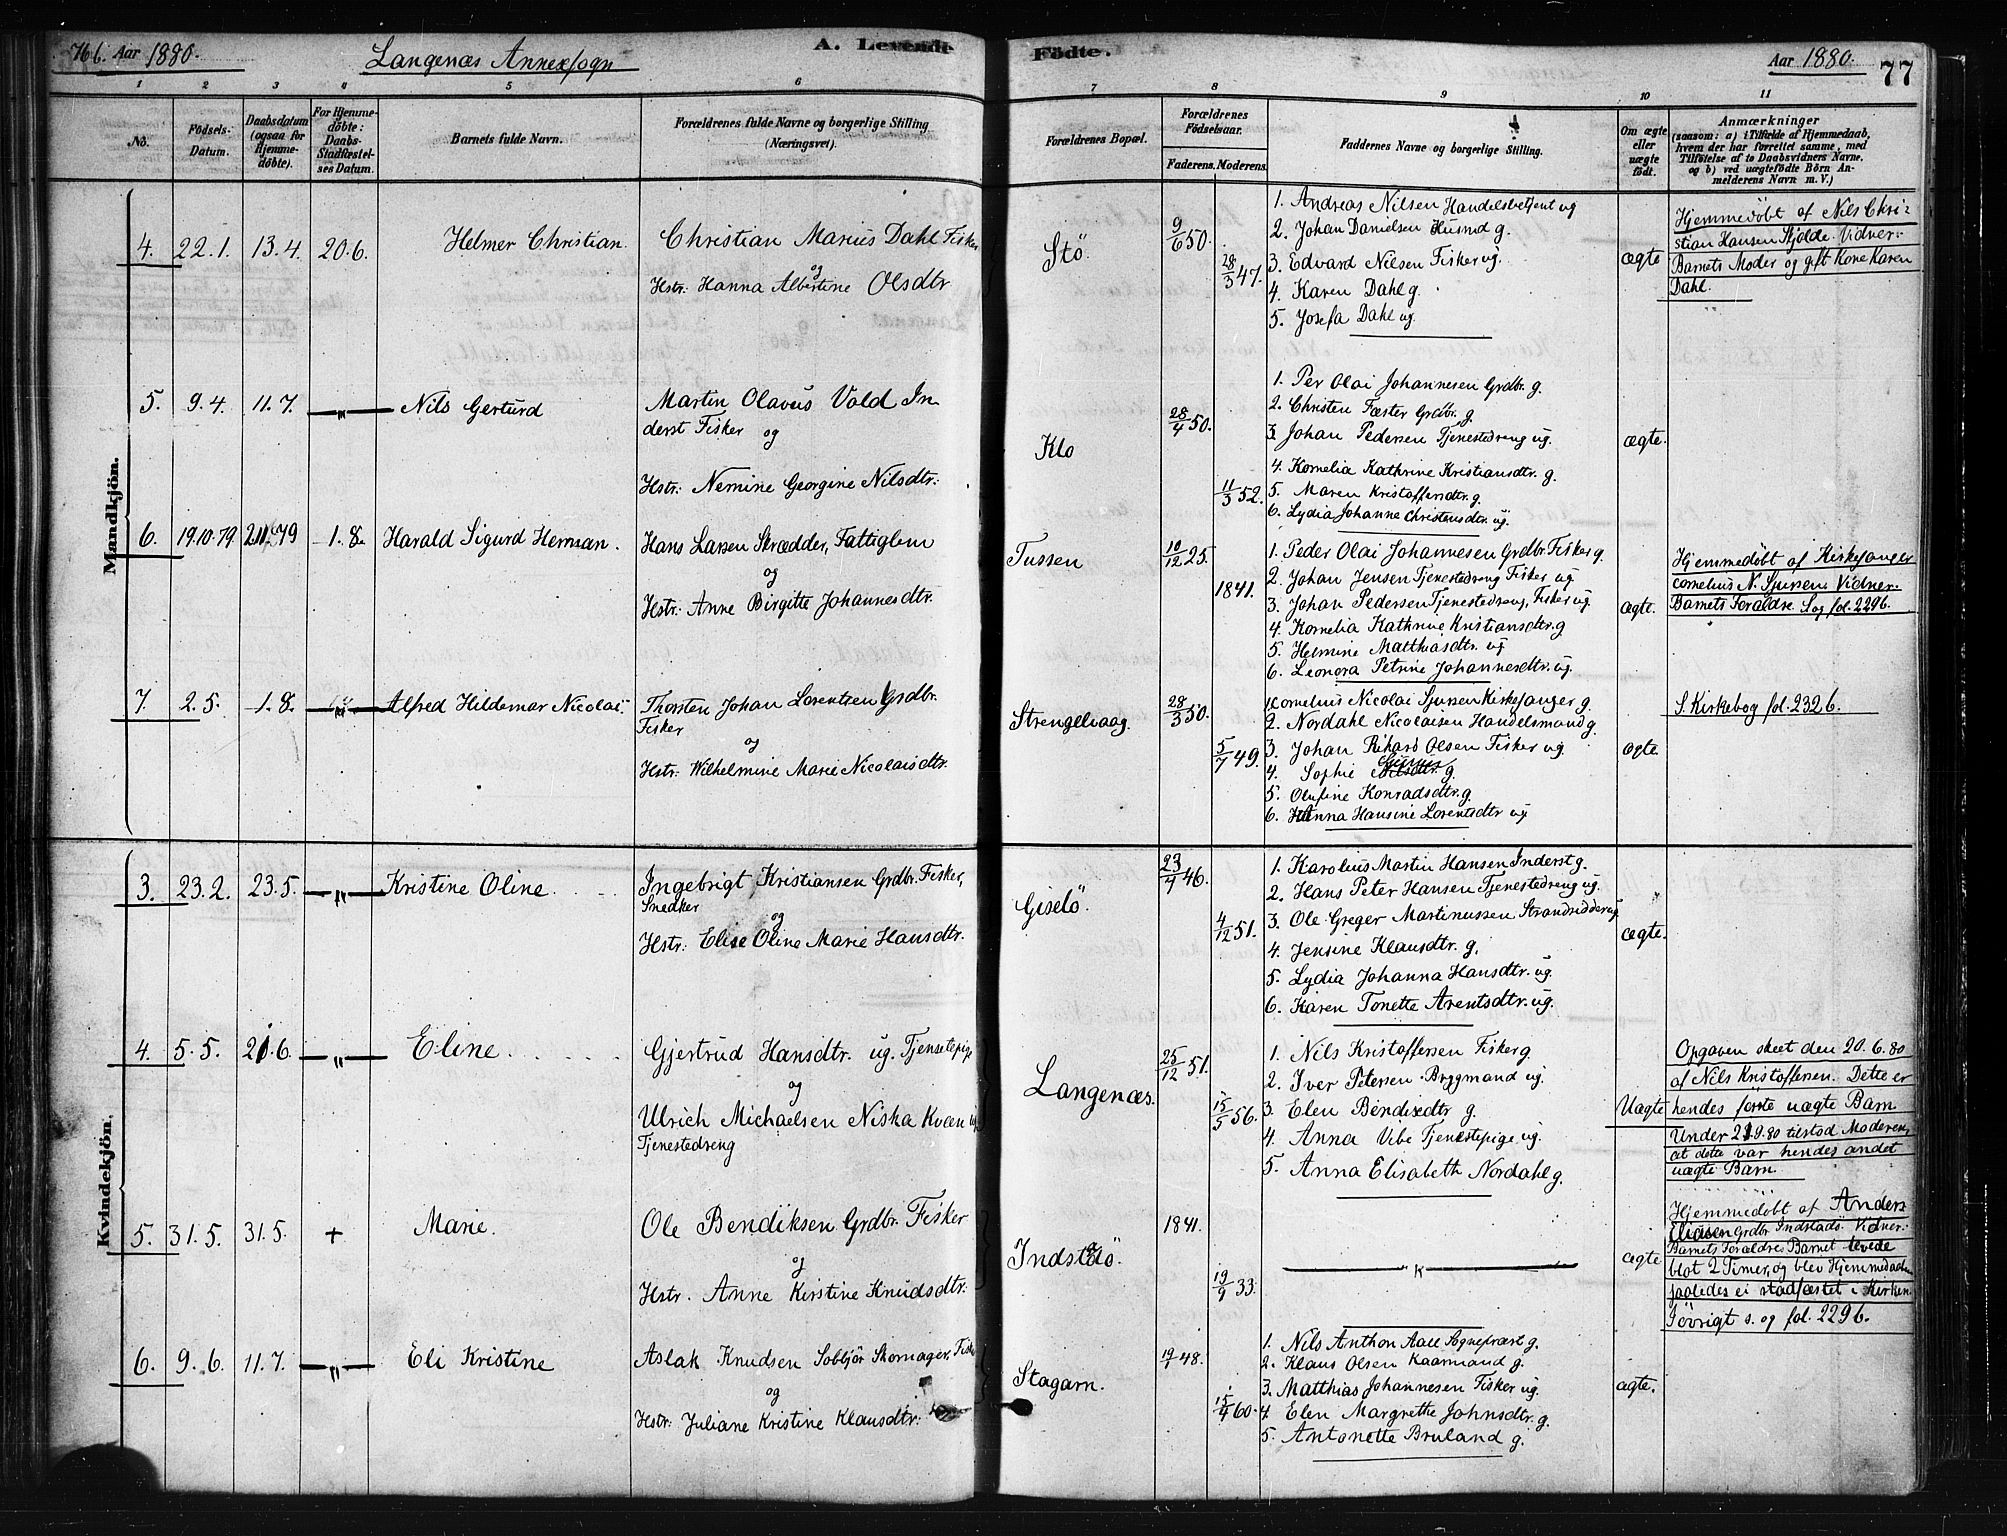 76b. Aar 1880.
Langenæs Annexsogn
A. Levende
1 2 3 4 5 6
No.
Födsels-Datum.
Daabsdatum (ogsaa for Hjemmedöbte).
For Hjemmedöbte: Daabs-Stadfæstelses Datum.
Barnets fulde Navn.
Forældrenes fulde Navne og borgerlige Stilling (Næringsvei).
Mandkjön.
4. 22.1. 13.4. 20.6. Helmer Christian. Christian Marius Dahl Fisker
og
Hstr: Hanna Albertine Olsdtr
5. 9.4. 11.7. —"— Nils Gerturd Martin Olaus Vold In
derst Fisker og
Hstr: Nemine Georgine Nilsdtr.
6. 19.10.79 2.11.79 1.8. Harald Sigurd Herman. Hans Larsen Skrædder, Fattiglem
og
Hstr: Anne Birgitte Johannesdtr.
7. 2.5. 1.8. —"— Alfred Hildemar Nicolai. Thorsten Johan Lorentzen Grdbr.
Fisker
og
Hstr: Wilhelmine Marie Nicolaisdtr.
Kvindekjön.
3. 23.2. 23.5. —"— Kristine Oline. Ingebrigt Kristiansen Grdbr. Fisker,
Snedker
og
Hstr: Elise Oline Marie Hansdtr.
4. 5.5. 20.6. —"— Eline. Gjertrud Hansdtr. ug. Tjenstepige
og
Ulrich Michaelsen Niska Kvæn ug
Tjenestedreng
5. 31.5. 31.5. + Marie. Ole Bendiksen Grdbr. Fisker
og
Hstr. Anne Kirstine Knudsdtr:
6. 9.6. 11.7. —"— Eli Kristine Aslak Knudsen Sobljör Skomager, Fisk
og
Hstr: Juliane Kristine Klausdtr:
Födte.
Aar 1880.
77
7 8 9 10 11
Forældrenes Bopæl.
Forældrenes Födselsaar.
Faderens. Moderens.
Faddernes Navne og borgerlige Stilling.
Om ægte eller uægte födt.
Anmærkninger
(saasom: a) i Tilfælde af Hjemmedaab, hvem der har forrettet samme, med Tilföielse af to Daabsvidners Navne, og b) ved uægtefödte Börn Anmelderens Navn m. V.)
Stö 9/6 50. 28/3 47. ægte
1. Andreas Nilsen Handelsbetjent ug
2. Johan Danielsen Husmd g.
3. Edvard Nilsen Fisker ug.
4. Karen Dahl g.
5. Josefa Dahl ug.
Hjemmedöbt af Nils Chri-
stian Hansen Skjolde. Vidner:
Barnets Moder og gift Kone Karen
Dahl.
Klo 28/4 50. 11/3 52. ægte.
1. Per Olai Johannesen Grdbr. g.
2. Christen Fæster Grdbr. g.
3. Johan Pedersen Tjenestedreng ug.
4. Kornelia Kathrine Kristiansdtr. g.
5. Maren Kristoffersdtr. g.
6. Lydia Johanne Christensdtr. ug.
Tussen 10/12 25. 1841. ægte.
1. Peder Olai Johannesen Grdbr. Fisker g.
2. Johan Jensen Tjenestedreng Fisker ug
3. Johan Pedersen Tjenestedreng, Fisker ug.
4. Kornelia Kathrine Kristiansdtr. g
5. Helmine Matthiasdtr. ug
6. Leonora Petrine Johannesdtr. ug.
Hjemmedöbt af Kirkesanger
Cornelius N. Sjursen. Vidner:
Barnets Forældre. S. og fol. 229b.
Strengelvaag. 28/3 50. 5/7 49. ægte.
1. Cornelius Nicolai Sjursen Kirkesanger g.
2. Nordahl Nicolaisen Handelsmand g.
3. Johan Rikard Olsen Fisker ug.
4. Sophie Nilsdtr. g.
5. Olufine Konradsdtr. g.
6. Hanna Hansine Lorentsdtr ug
S. Kirkebog fol. 232 b.
Giselö. 23/4 46. 4/12 51. ægte.
1. Karolius Martin Hansen Inderst g.
2. Hans Peter Hansen Tjenestedreng ug.
3. Ole Greger Martinussen Strandsidder ug
4. Jensine Klausdtr. g.
5. Lydia Johanna Hansdtr. ug.
6. Karen Tonette Arentsdtr. ug.
Langenæs. 25/12 51. 15/5 56. Uægte
1. Nils Kristoffersen Fisker g.
2. Iver Petersen Brygmand ug.
3. Elen Bendixdtr g.
4. Anna Vibe Tjenestepige ug.
5. Anna Elisabeth Nordahl g.
Opgaven skeet den 20.6.80
af Nils Kristoffersen. Dette er
hendes förste uægte Barn
Under 21.9.80 tilstod Moderen,
at dette var hendes andet
uægte Barn.
Indstadö. 1841. 19/9 33. ægte
—"—
Hjemmedöbt af Anders
Eliasen Grdbr Indstadö. Vidner:
Barnets Forældre. Barnet levede
blot 2 Timer, og blev Hjemmedaaben
saaledes ei stadfæstet i Kirken
Iövrigt s. og fol. 229b.
Stagarn. 19/1 48. 15/4 60. ægte.
1. Nils Anthon Aall Sognepræst g.
2. Klaus Olsen Kaarmand g.
3. Matthias Johannesen Fisker ug.
4. Elen Margrethe Johnsdtr. g.
5. Antonette Bruland g.